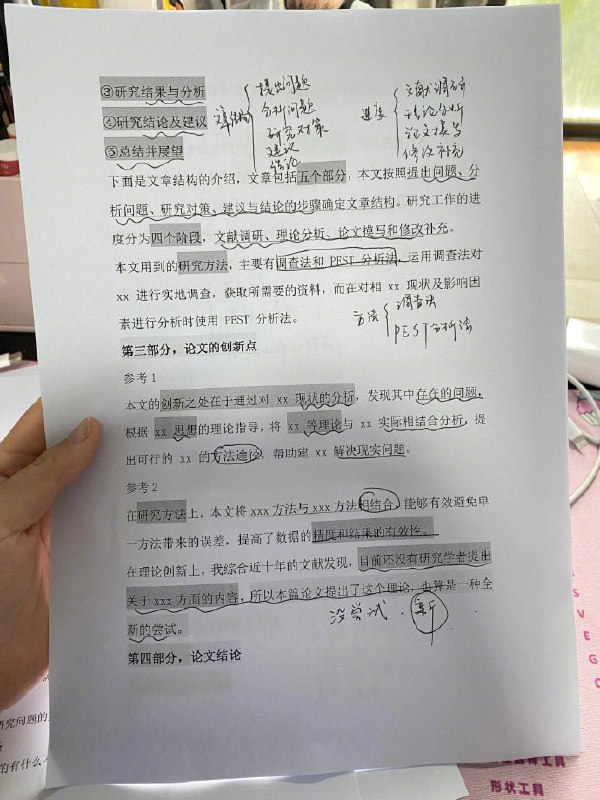 ③研究结果与分析
④研究结论及建议
⑤总结并展望
文章结构
提出问题
分析问题
研究对策
建议
结论
进度
文献调研
理论分析
论文撰写
修改补充
下面是文章结构的介绍，文章包括五个部分，本文按照提出问题、分
析问题、研究对策、建议与结论的步骤确定文章结构。研究工作的进
度分为四个阶段，文献调研、理论分析、论文撰写和修改补充。
本文用到的研究方法，主要有调查法和 PEST 分析法，运用调查法对
xx 进行实地调查，获取所需要的资料，而在对相 xx 现状及影响因
素进行分析时使用 PEST 分析法。
方法
调查法
PEST分析法
第三部分，论文的创新点
参考1
本文的创新之处在于通过对 xx 现状的分析，发现其中存在的问题，
根据 xx 思想的理论指导，将 xx 等理论与 xx 实际相结合分析，提
出可行的 xx 的方法途径，帮助建 xx 解决现实问题。
参考2
在研究方法上，本文将 xxx 方法与 xxx 方法相结合，能够有效避免单
一方法带来的误差，提高了数据的精度和结果的有效性。
在理论创新上，我综合近十年的文献发现，目前还没有研究学者提出
关于 xxx 方面的内容，所以本篇论文提出了这个理论，也算是一种全
新的尝试。
没尝试．新
第四部分，论文结论
究问题的
的有什么
S
V
E
G
C
形状工具